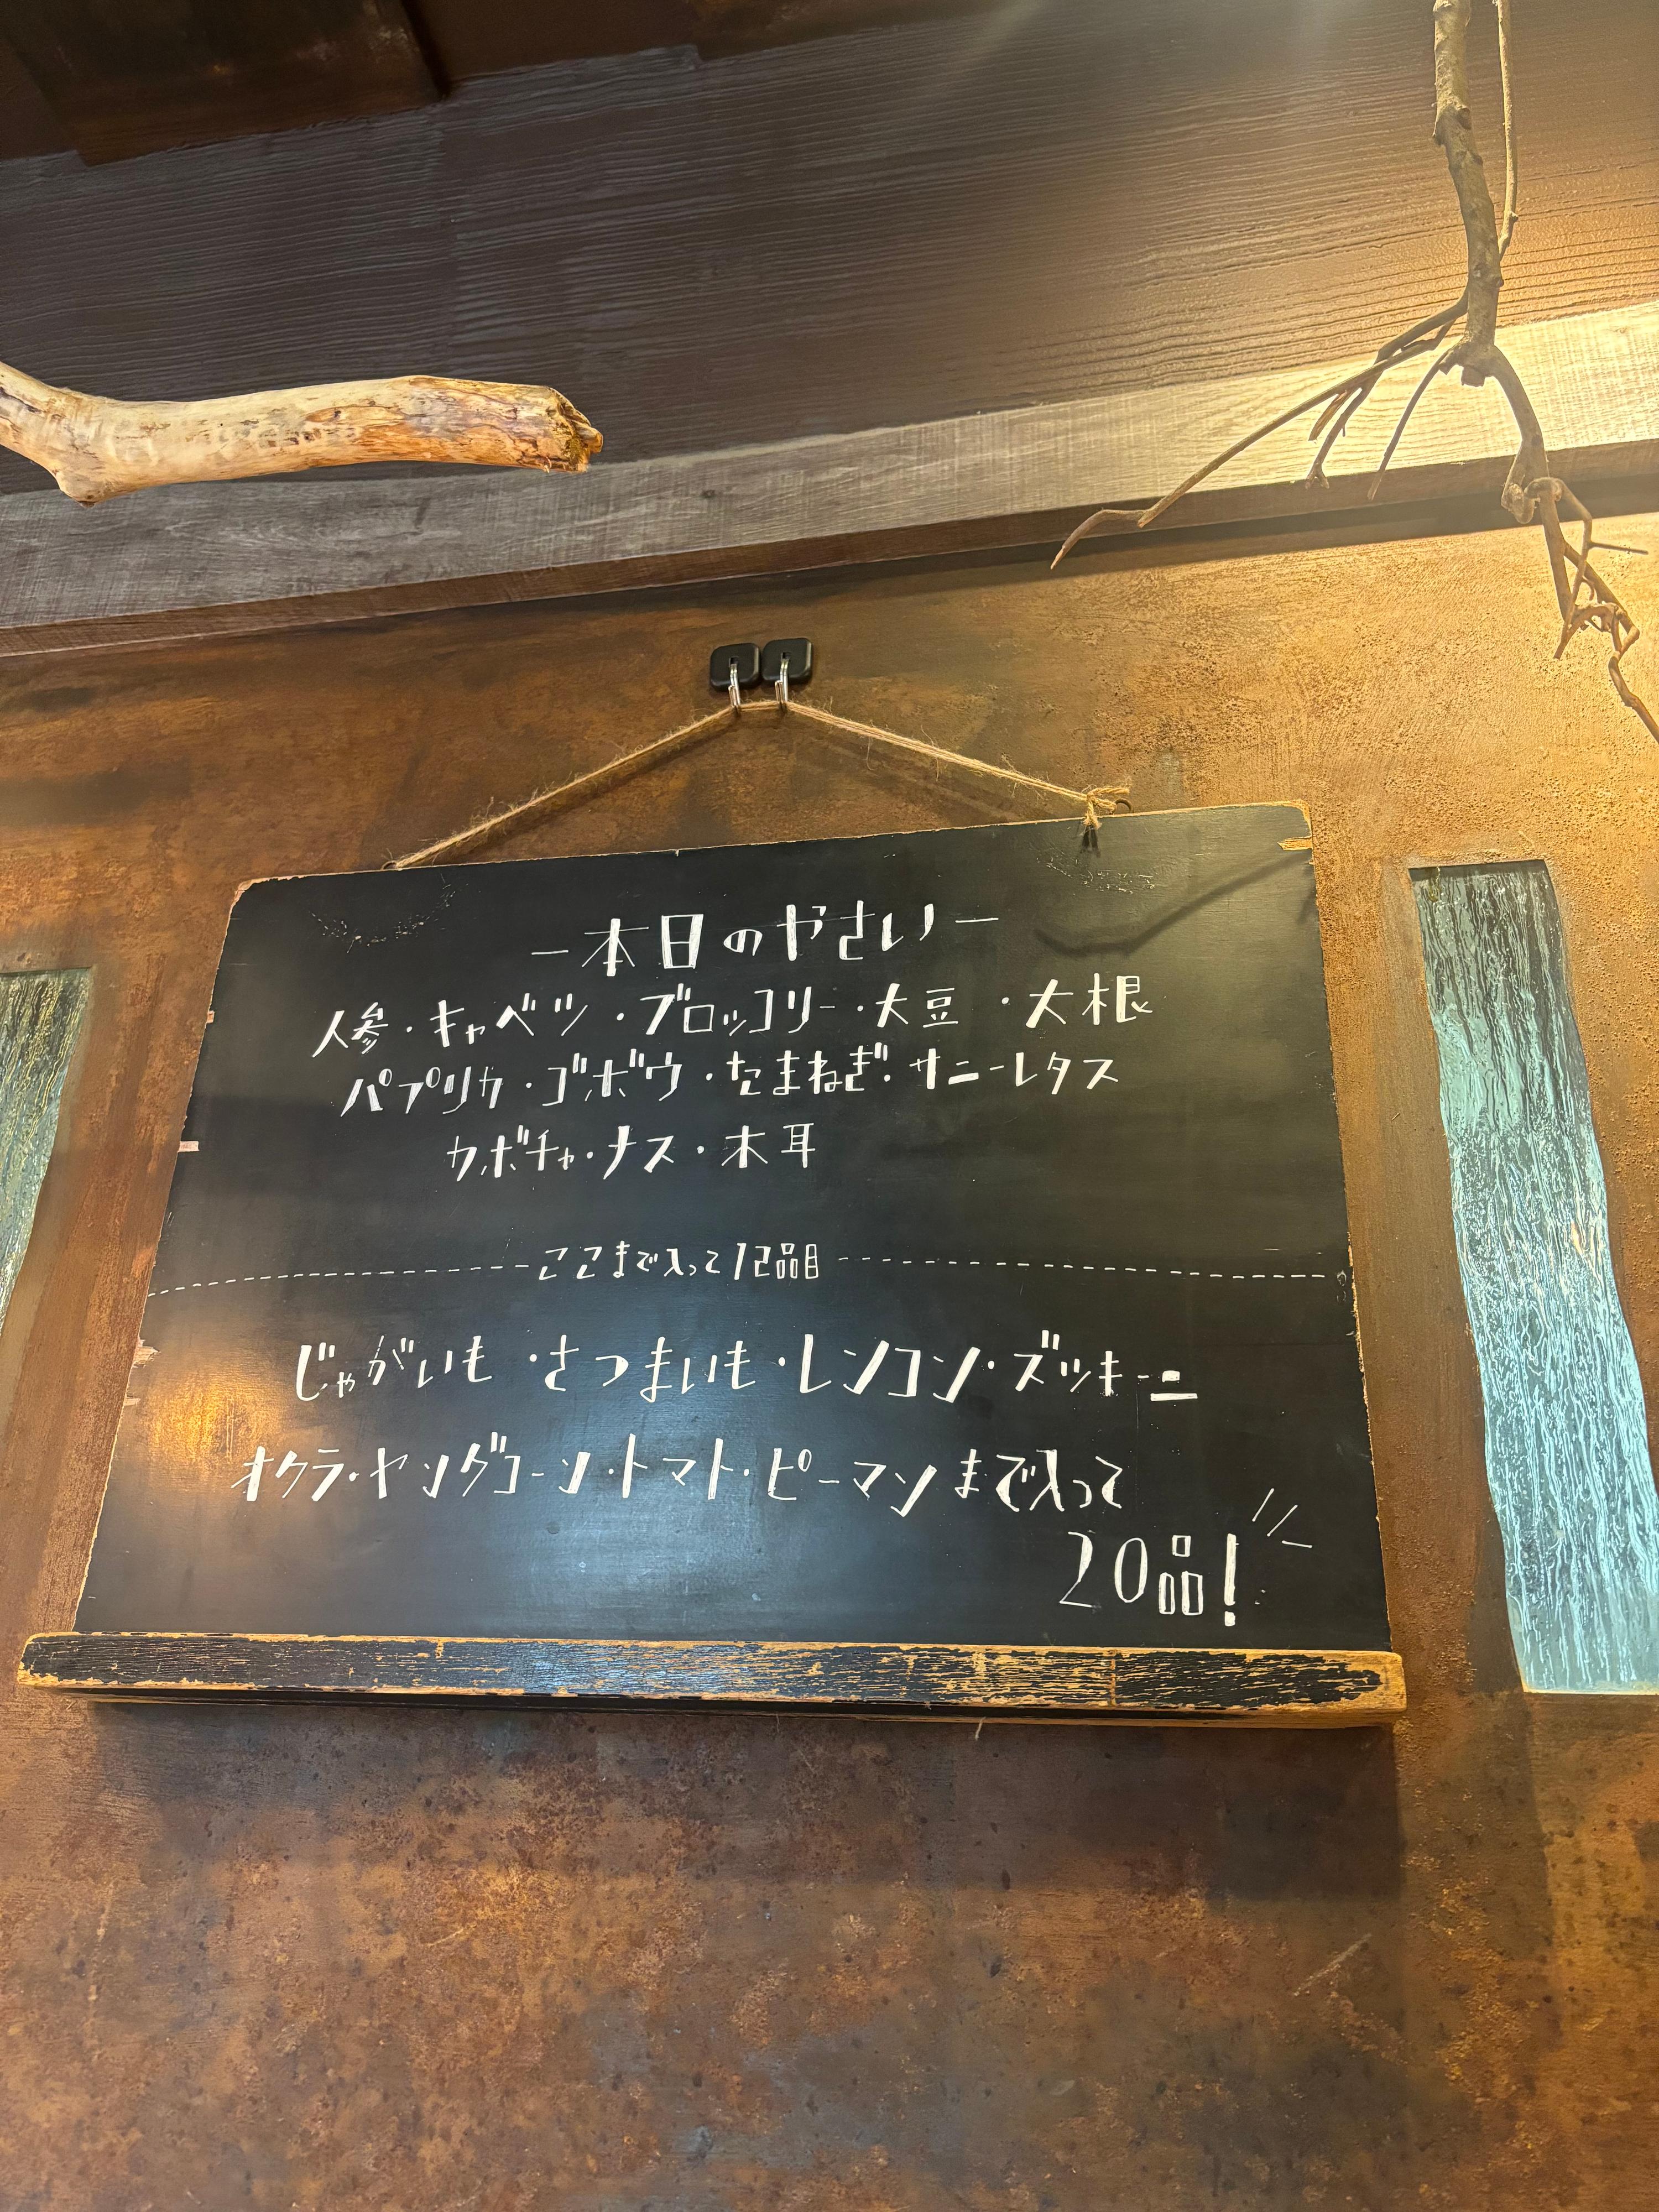 －本日のやさい－
人参・キャベツ・ブロッコリー・大豆・大根
パプリカ・ゴボウ・たまねぎ・サニーレタス
カボチャ・ナス・木耳
ここまで入って12品目
じゃがいも・さつまいも・レンコン・ズッキーニ
オクラ・ヤングコーン・トマト・ピーマンまで入って
20品!